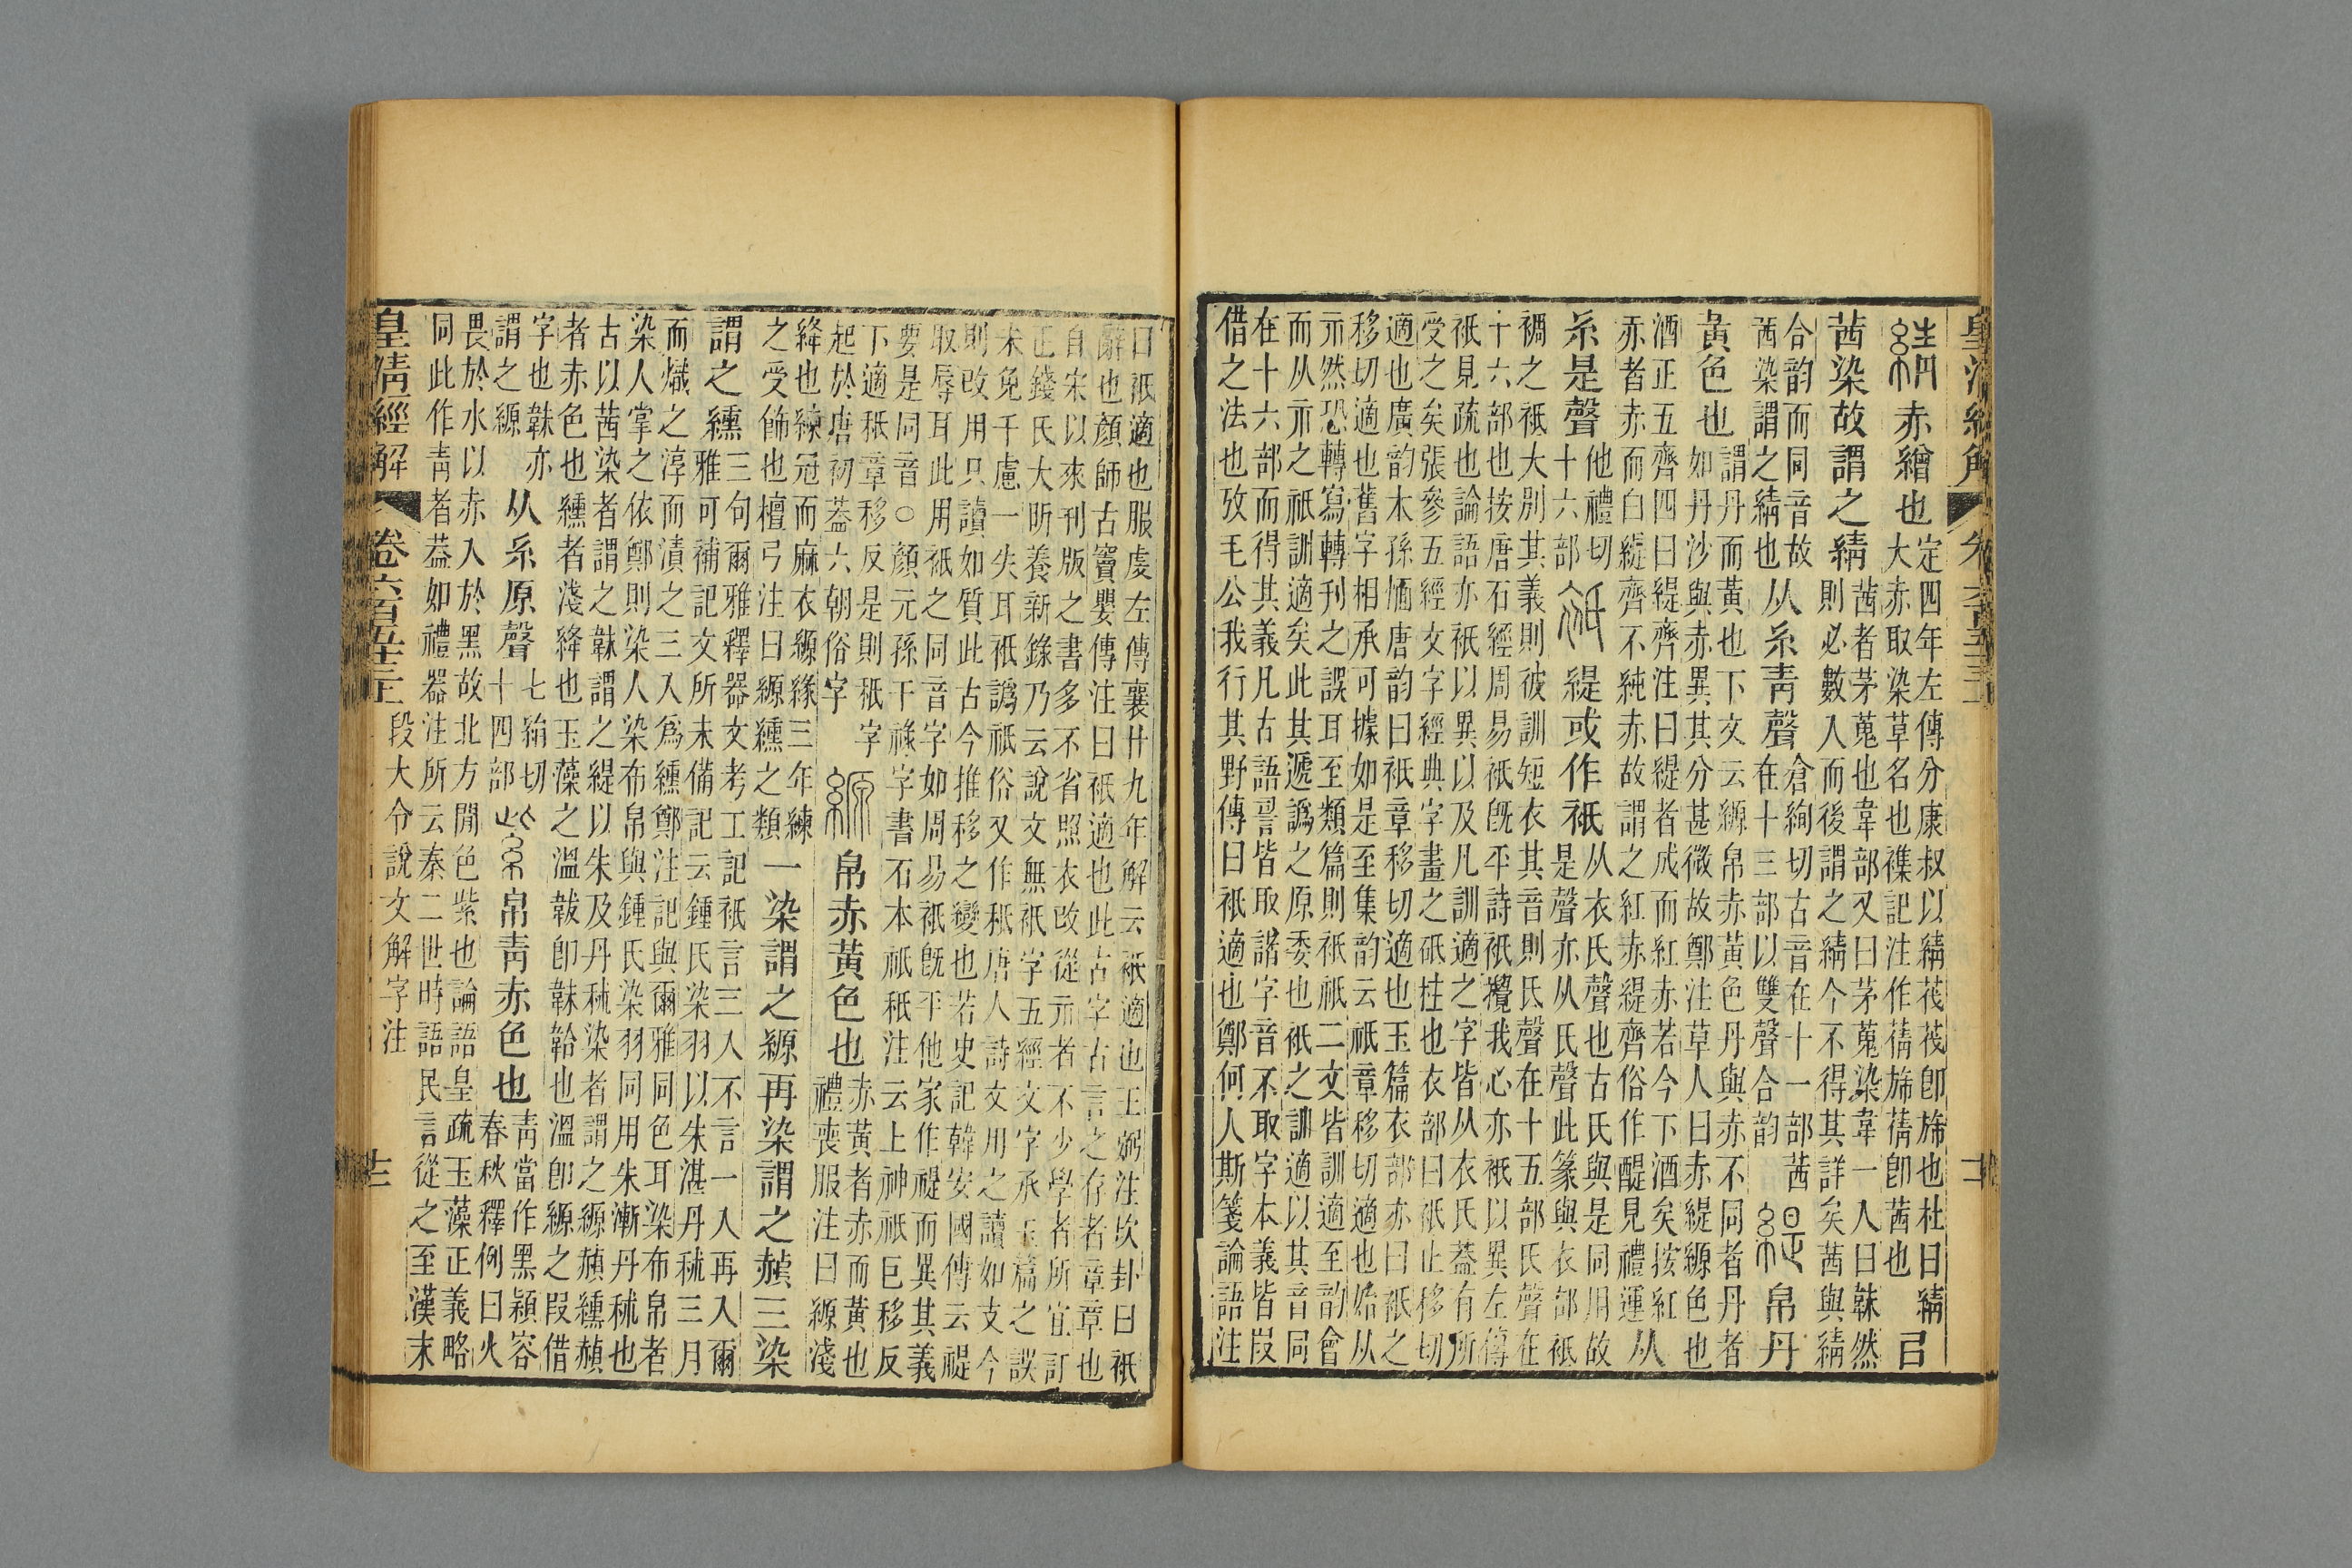 綪
赤繒也
定四年左傳分康叔以綪茷茷卽旆也杜曰綪
大赤取染草名也襍記注作蒨旆蒨卽茜也
㠯
茜染故謂之綪
茜者茅蒐也韋部又曰茅蒐染韋一入曰韎然
則必數入而後謂之綪今不得其詳矣茜與綪
合韵而同音故
茜染謂之綪也
从糸青聲
倉絢切古音在十一部茜
在十三部以雙聲合韵
緹
帛丹
黃色也
謂丹而黃也下文云縓帛赤黃色丹與赤不同者丹者
如丹沙與赤異其分甚微故鄭注草人曰赤緹縓色也
酒正五齊四曰緹齊注曰緹者成而紅赤若今下酒矣按紅
赤者赤而白緹齊不純赤故謂之紅赤緹齊俗作醍見禮運
从
糸是聲
他禮切
十六部
衹
緹或作衹
从衣氏聲也古氏與是同用故
是聲亦从氏聲此篆與衣部衹
裯之衹大別其義則彼訓短衣其音則氐聲在十五部氏聲在
十六部也按唐石經周易衹旣平詩衹攪我心亦衹以異左傳
衹見疏也論語亦衹以異以及凡訓適之字皆从衣氏葢有所
受之矣張參五經文字經典字畫之砥柱也衣部曰衹止移切
適也廣韵本孫愐唐韵曰衹章移切適也玉篇衣部亦曰衹之
移切適也舊字相承可據如是至集韵云衹章移切適也始从
示然恐轉寫轉刊之誤耳至類篇則衹祇二文皆訓適至韵會
而从示之祇訓適矣此其遞譌之原委也衹之訓適以其音同
在十六部而得其義凡古語䛐皆取諧字音不取字本義皆叚
借之法也攷毛公我行其野傳曰衹適也鄭何人斯箋論語注
曰衹適也服虔左傳襄廿九年解云衹適也王弼注坎卦曰衹
辭也顏師古竇嬰傳注曰衹適也此古字古言之存者章章也
自宋以來刊版之書多不省照衣改從示者不少學者所宜訂
正錢氏大昕養新錄乃云說文無衹字五經文字承玉篇之誤
未免千慮一失耳衹譌祇俗又作秖唐人詩文用之讀如支今
則改用只讀如質此古今推移之變也若史記韓安國傳云禔
取辱耳此用衹之同音字如周易衹旣平他家作禔而異其義
要是同音○顏元孫干祿字書石本祇秖注云上神祇巨移反
下適秖章移反是則秖字
起於唐初葢六朝俗字
縓
帛赤黃色也
赤黃者赤而黃也
禮喪服注曰縓淺
絳也練冠而麻衣縓緣三年練
之受飾也檀弓注曰縓纁之類
一染謂之縓再染謂之赬三染
謂之纁
三句爾雅釋器文考工記衹言三入不言一入再入爾
雅可補記文所未備記云鍾氏染羽以朱湛丹秫三月
而熾之淳而漬之三入爲纁鄭注記與爾雅同色耳染布帛者
染人掌之依鄭則染人染布帛與鍾氏染羽同用朱漸丹秫也
古以茜染者謂之韎謂之緹以朱及丹秫染者謂之縓赬纁赬
者赤色也纁者淺絳也玉藻之溫韍卽韎韐也溫卽縓之叚借
字也韎亦
謂之縓
从糸原聲
七絹切
十四部
紫
帛靑赤色也
靑當作黑潁容
春秋釋例曰火
畏於水以赤入於黑故北方閒色紫也論語皇疏玉藻正義略
同此作靑者葢如禮器注所云秦二世時語民言從之至漢末
皇清經解
卷六百五十三
段大令說文解字注